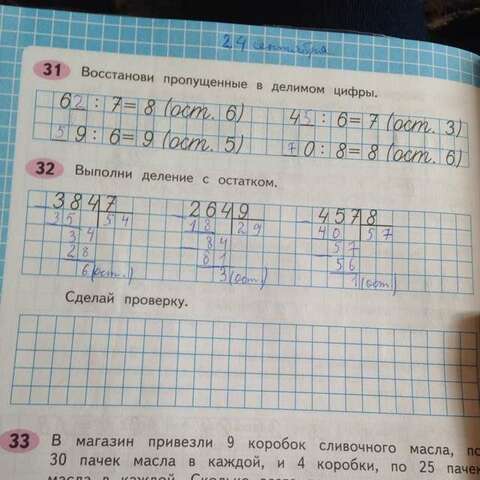 24 сентября
31 Восстанови пропущенные в делимом цифры.
62 : 7 = 8 (ост. 6) 45 : 6 = 7 (ост. 3)
59 : 6 = 9 (ост. 5) 70 : 8 = 8 (ост. 6)
32 Выполни деление с остатком.
384 7 264 9 457 8
35 54 18 29 40 57
34 84 57
28 81 56
6 (ост.) 3 (ост) 1 (ост)
Сделай проверку.
33 В магазин привезли 9 коробок сливочного масла, по
30 пачек масла в каждой, и 4 коробки, по 25 пачек
масла в каждой. Сколько всего